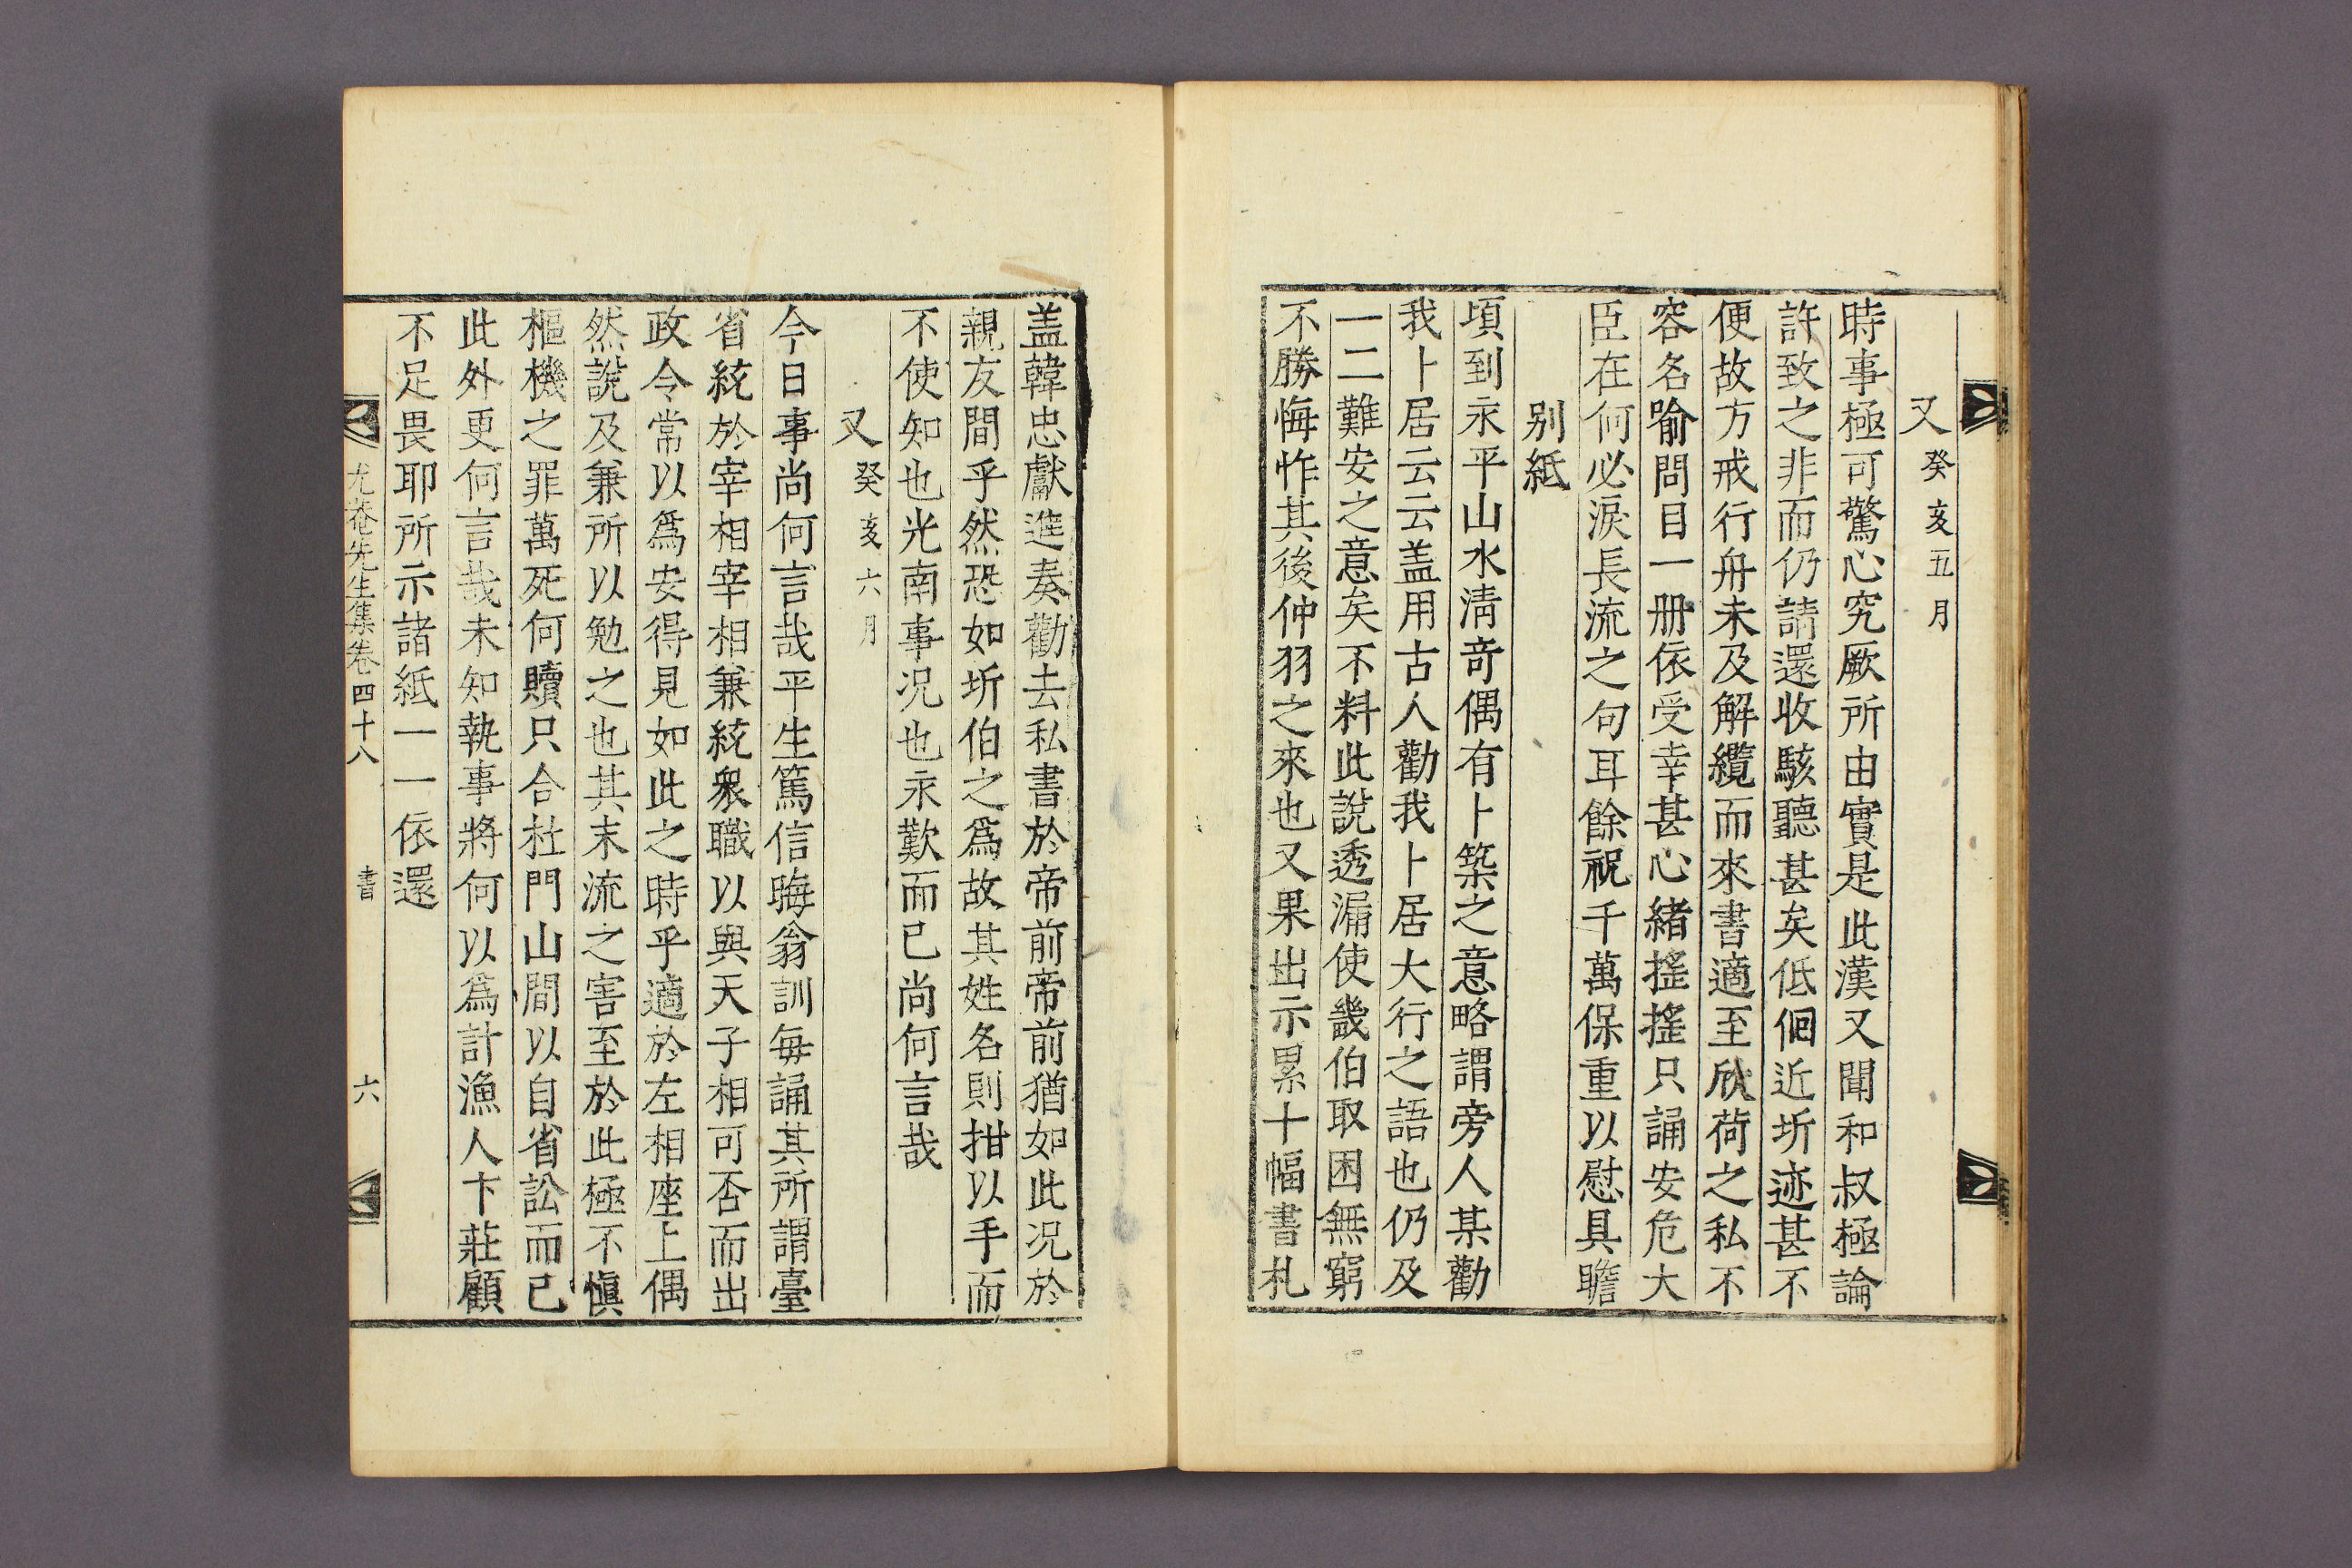 又癸亥五月
時事極可驚心究厥所由實是此漢又聞和叔極論
許致之非而仍請還收駭聽甚矣低佪近圻迹甚不
便故方戒行舟未及解纜而來書適至欣荷之私不
容名喻問目一册依受幸甚心緖搖搖只誦安危大
臣在何必淚長流之句耳餘祝千萬保重以慰具瞻
別紙
頃到永平山水淸奇偶有卜築之意略謂旁人某勸
我卜居云云盖用古人勸我卜居大行之語也仍及
一二難安之意矣不料此說透漏使畿伯取困無窮
不勝悔怍其後仲羽之來也又果出示累十幅書札
盖韓忠獻進奏勸去私書於帝前帝前猶如此况於
親友間乎然恐如圻伯之爲故其姓名則拑以手而
不使知也光南事况也永歎而已尚何言哉
又癸亥六月
今日事尚何言哉平生篤信晦翁訓每誦其所謂臺
省統於宰相宰相兼統衆職以與天子相可否而出
政令常以爲安得見如此之時乎適於左相座上偶
然說及兼所以勉之也其末流之害至於此極不愼
樞機之罪萬死何贖只合杜門山間以自省訟而已
此外更何言哉未知執事將何以爲計漁人卞莊顧
不足畏耶所示諸紙一一依還
尤菴先生集卷四十八 書 六